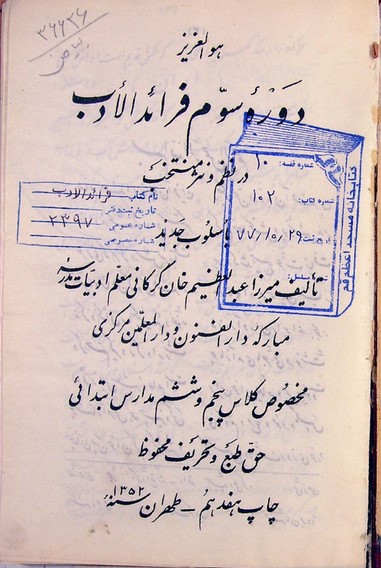 ۳۶۶۳۶
هو العزیز
دورهٔ سوم فرائد الأدب
در نظم و نثر منتخب
باسلوب جدید
تألیف میرزا عبدالعظیم خان گرکانی معلم ادبیات مدرسه
مبارکهٔ دار الفنون و دار المعلمین مرکزی
مخصوص کلاس پنجم و ششم مدارس ابتدائی
حق طبع و تحریف محفوظ
چاپ هفدهم - طهران سنه ۱۳۵۲
نام کتاب فرائد الادب
تاریخ ثبت دفتر
شماره عمومی ۲۳۹۷
شماره خصوصی
شماره قفسه: ۱۰
شماره کتاب: ۱۰۲
۷۷/۱۰/۲۹
کتابخانه مسجد اعظم قم